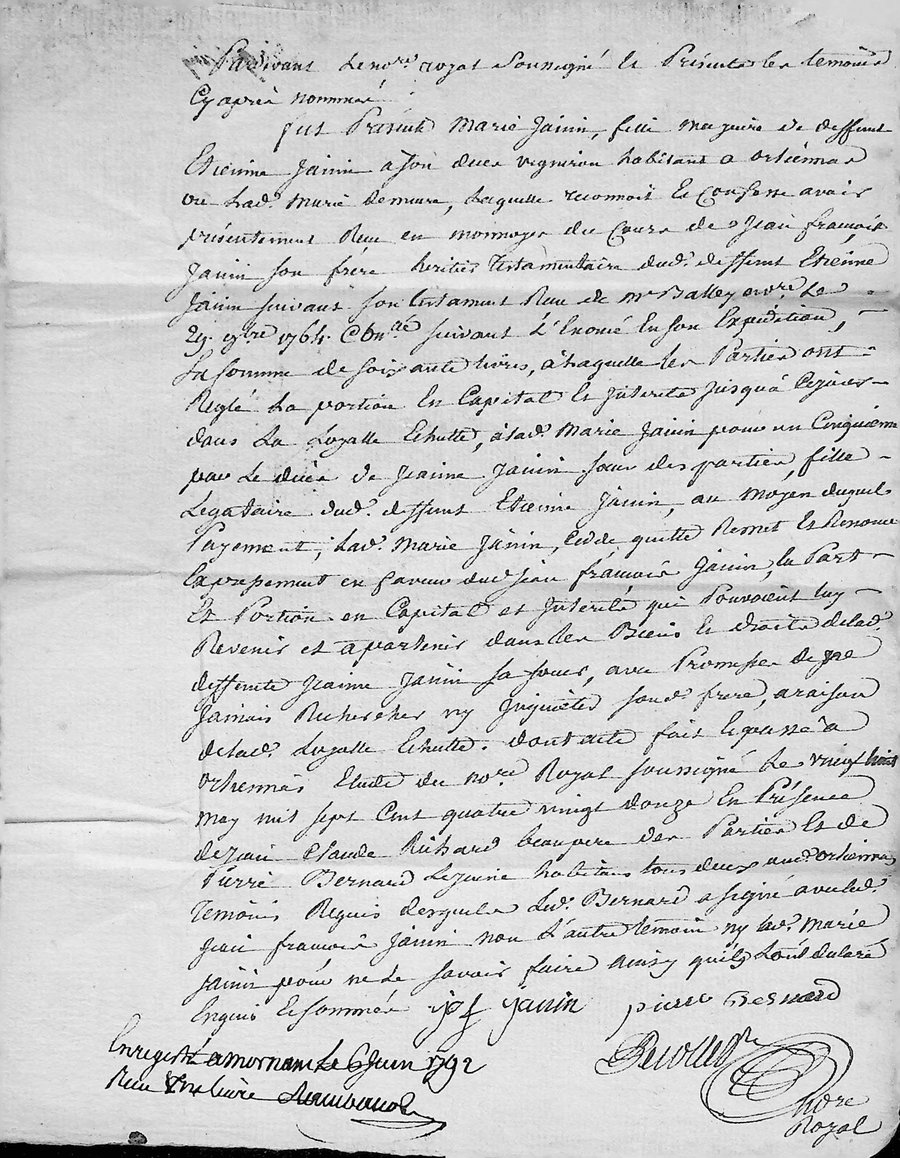 Pardevant Le nore. royal Soussigné Et Présents les temoins
Cy après nommés
fut Présente Marie Janin, fille majeure de deffunt
Etienne Janin a son deces vigneron habitant a orliennas
et de Lade. Marie demure, Laquelle reconnoit Et Confesse avoir
présentement Reçu en monnoyes du Cours de Jean françois
Janin son frère heritier testamentaire dud. deffunt Etienne
Janin suivant son testament Reçu de Me Balley nore. Le
29. 1764. Con.lé suivant L'Enoncé En son Expedition,
La somme de soixante livres, a Laquelle les Parties ont
Reglé La portion En Capital Et Interets jusqu'à Cejour
dans La Loyalle Echutte, a Lade. Marie Janin pour un Cinquième
par Le décès de jeanne Janin sœur des parties, fille
Legataire dud. deffunt Etienne Janin, au moyen duquel
Payement, Lade. Marie Janin, Cedde quitte Remet Et Renonce
Expressement en faveur dud. jean françois Janin, la Part
Et Portion en Capital et Interets qui Pouvoient luy
Revenir et apartenir dans les Biens Et droits delade.
deffunte Jeanne Janin sa sœur, avec Promesse de ne
Jamais Rechercher ny Inquieter sond. frère, a raison
delade. Loyalle Echutte. dont acte fait Et passé a
orliennas Etude du nore. Royal soussigné Le vingt huit
may mil sept Cent quatre vingt douze En Présence
de jean Claude Richard beaupere des Parties Et de
Pierre Bernard Lejeune habitans tous deux aud. orliennas
Temoins Requis desquels Led. Bernard a signé avec led.
jean françois Janin non L'autre temoin ny Lade. Marie
Janin pour ne Le savoir faire ainsy qu'ils L'ont declaré
Enquis Et sommés jf janin pierre Bernard
Enregistré a mornant Le 6 Juin 1792
Reçu
nore
Royal